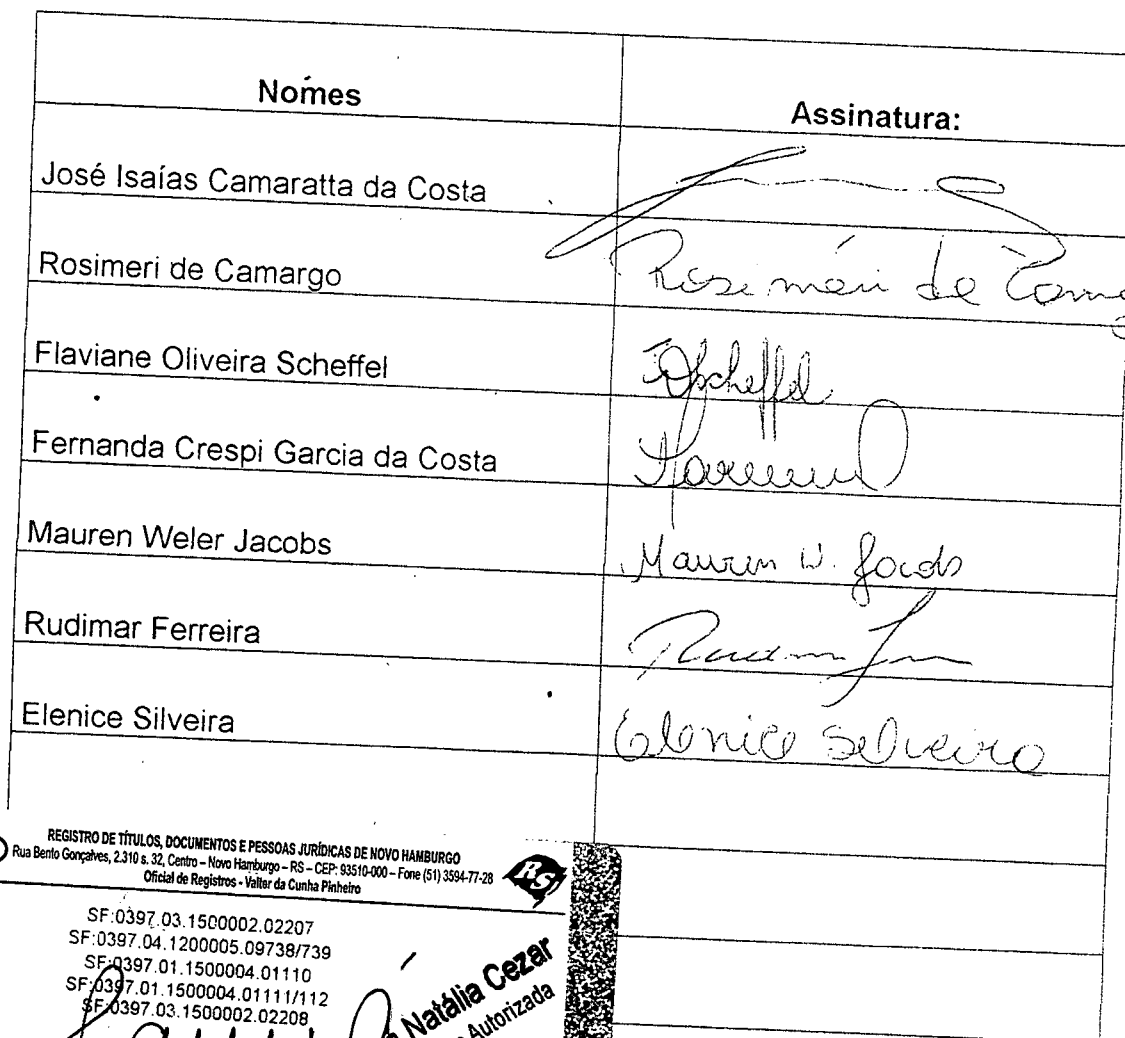 Nomes Assinatura:
José Isaías Camaratta da Costa
Rosimeri de Camargo Rosimeri de Camargo
Flaviane Oliveira Scheffel FOScheffel
Fernanda Crespi Garcia da Costa
Mauren Weler Jacobs Mauren W. Jacobs
Rudimar Ferreira
Elenice Silveira Elenice Silveira
REGISTRO DE TÍTULOS, DOCUMENTOS E PESSOAS JURÍDICAS DE NOVO HAMBURGO
Rua Bento Gonçalves, 2.310 s. 32, Centro – Novo Hamburgo – RS – CEP: 93510-000 – Fone (51) 3594-77-28
Oficial de Registros - Valter da Cunha Pinheiro
RS
SF:0397.03.1500002.02207
SF:0397.04.1200005.09738/739
SF:0397.01.1500004.01110
SF:0397.01.1500004.01111/112
SF:0397.03.1500002.02208
Natália Cezar
Autorizada